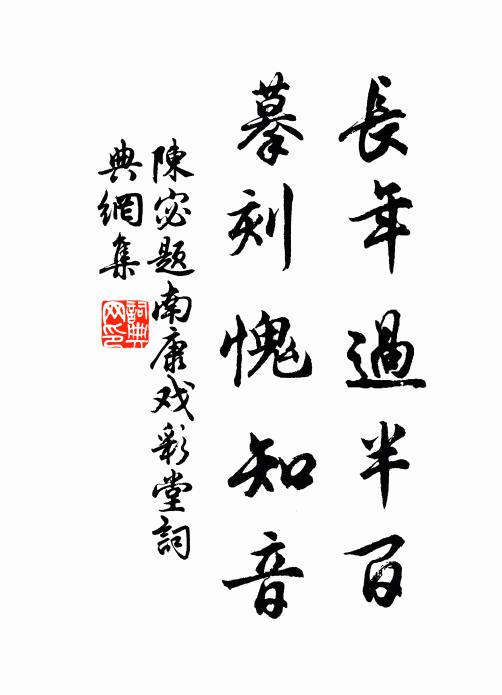 長年過半百
摹刻愧知音
陳宓題南康戏彩堂詞
典網集
詞典
网印